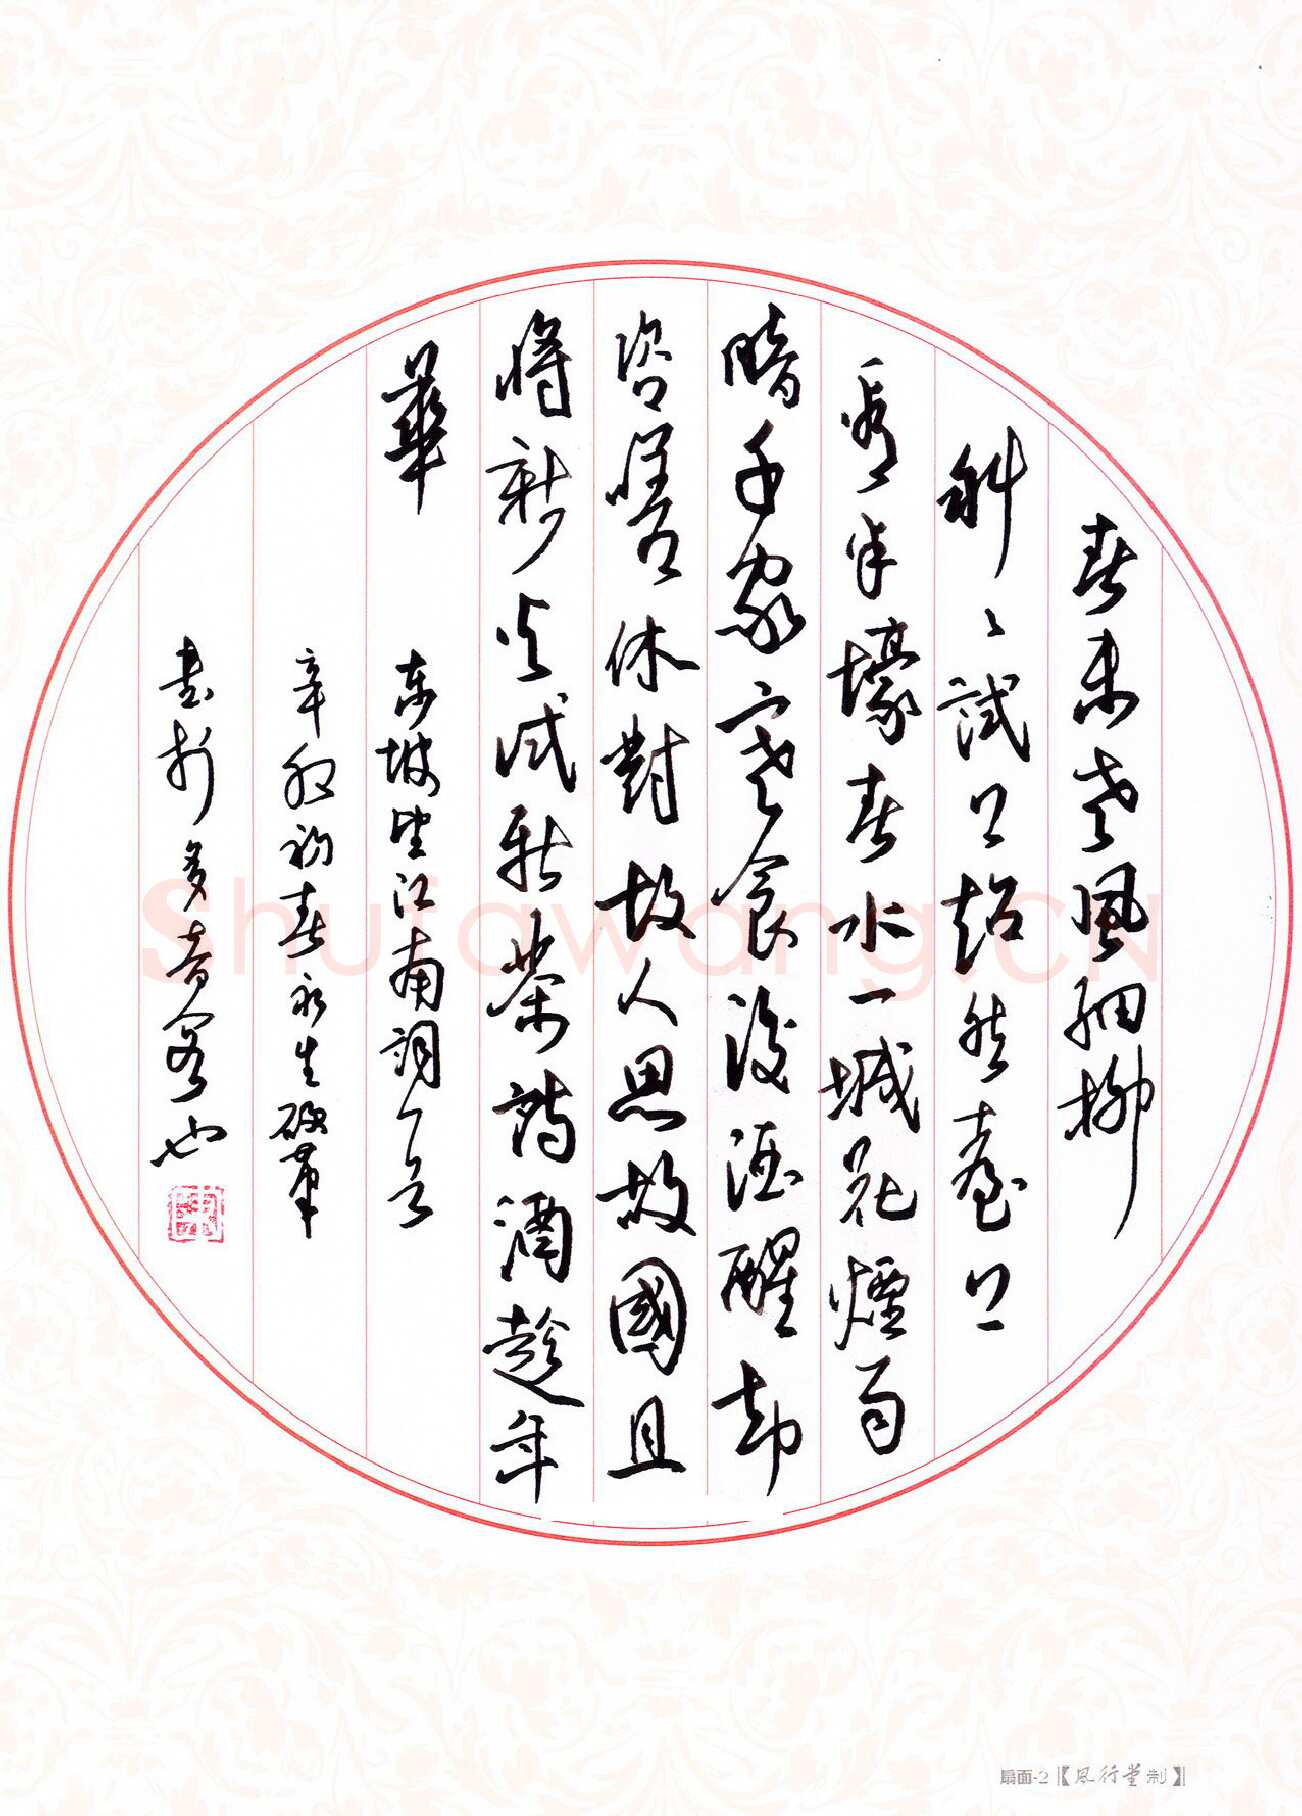 春未老風細柳
斜〻試上超然臺上
看半壕春水一城花煙雨
暗千家寒食後酒醒却
咨嗟休對故人思故國且
將新火試新茶詩酒趁年
華
東坡望江南詞一首
辛卯初春永生硬筆
書於多音齋也
Shufawang.CN
扇面-2【风行堂制】